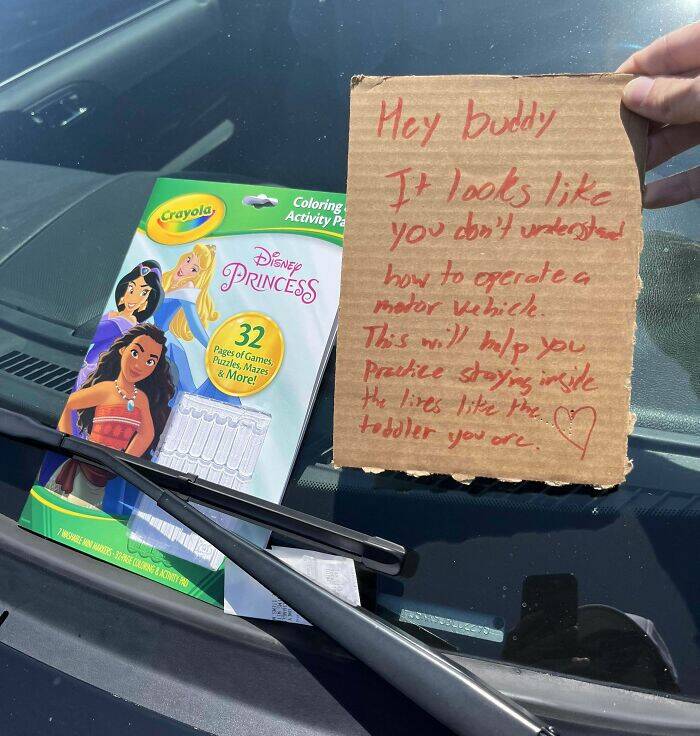 Crayola
Coloring
Activity Pa
Disney
PRINCESS
32
Pages of Games,
Puzzles, Mazes
& More!
7 WASHABLE MINI MARKERS • 32-PAGE COLORING & ACTIVITY PAD
Hey buddy
It looks like
you don't understand
how to operate a
motor vehicle.
This will help you
practice staying inside
the lines like the...
toddler you are.